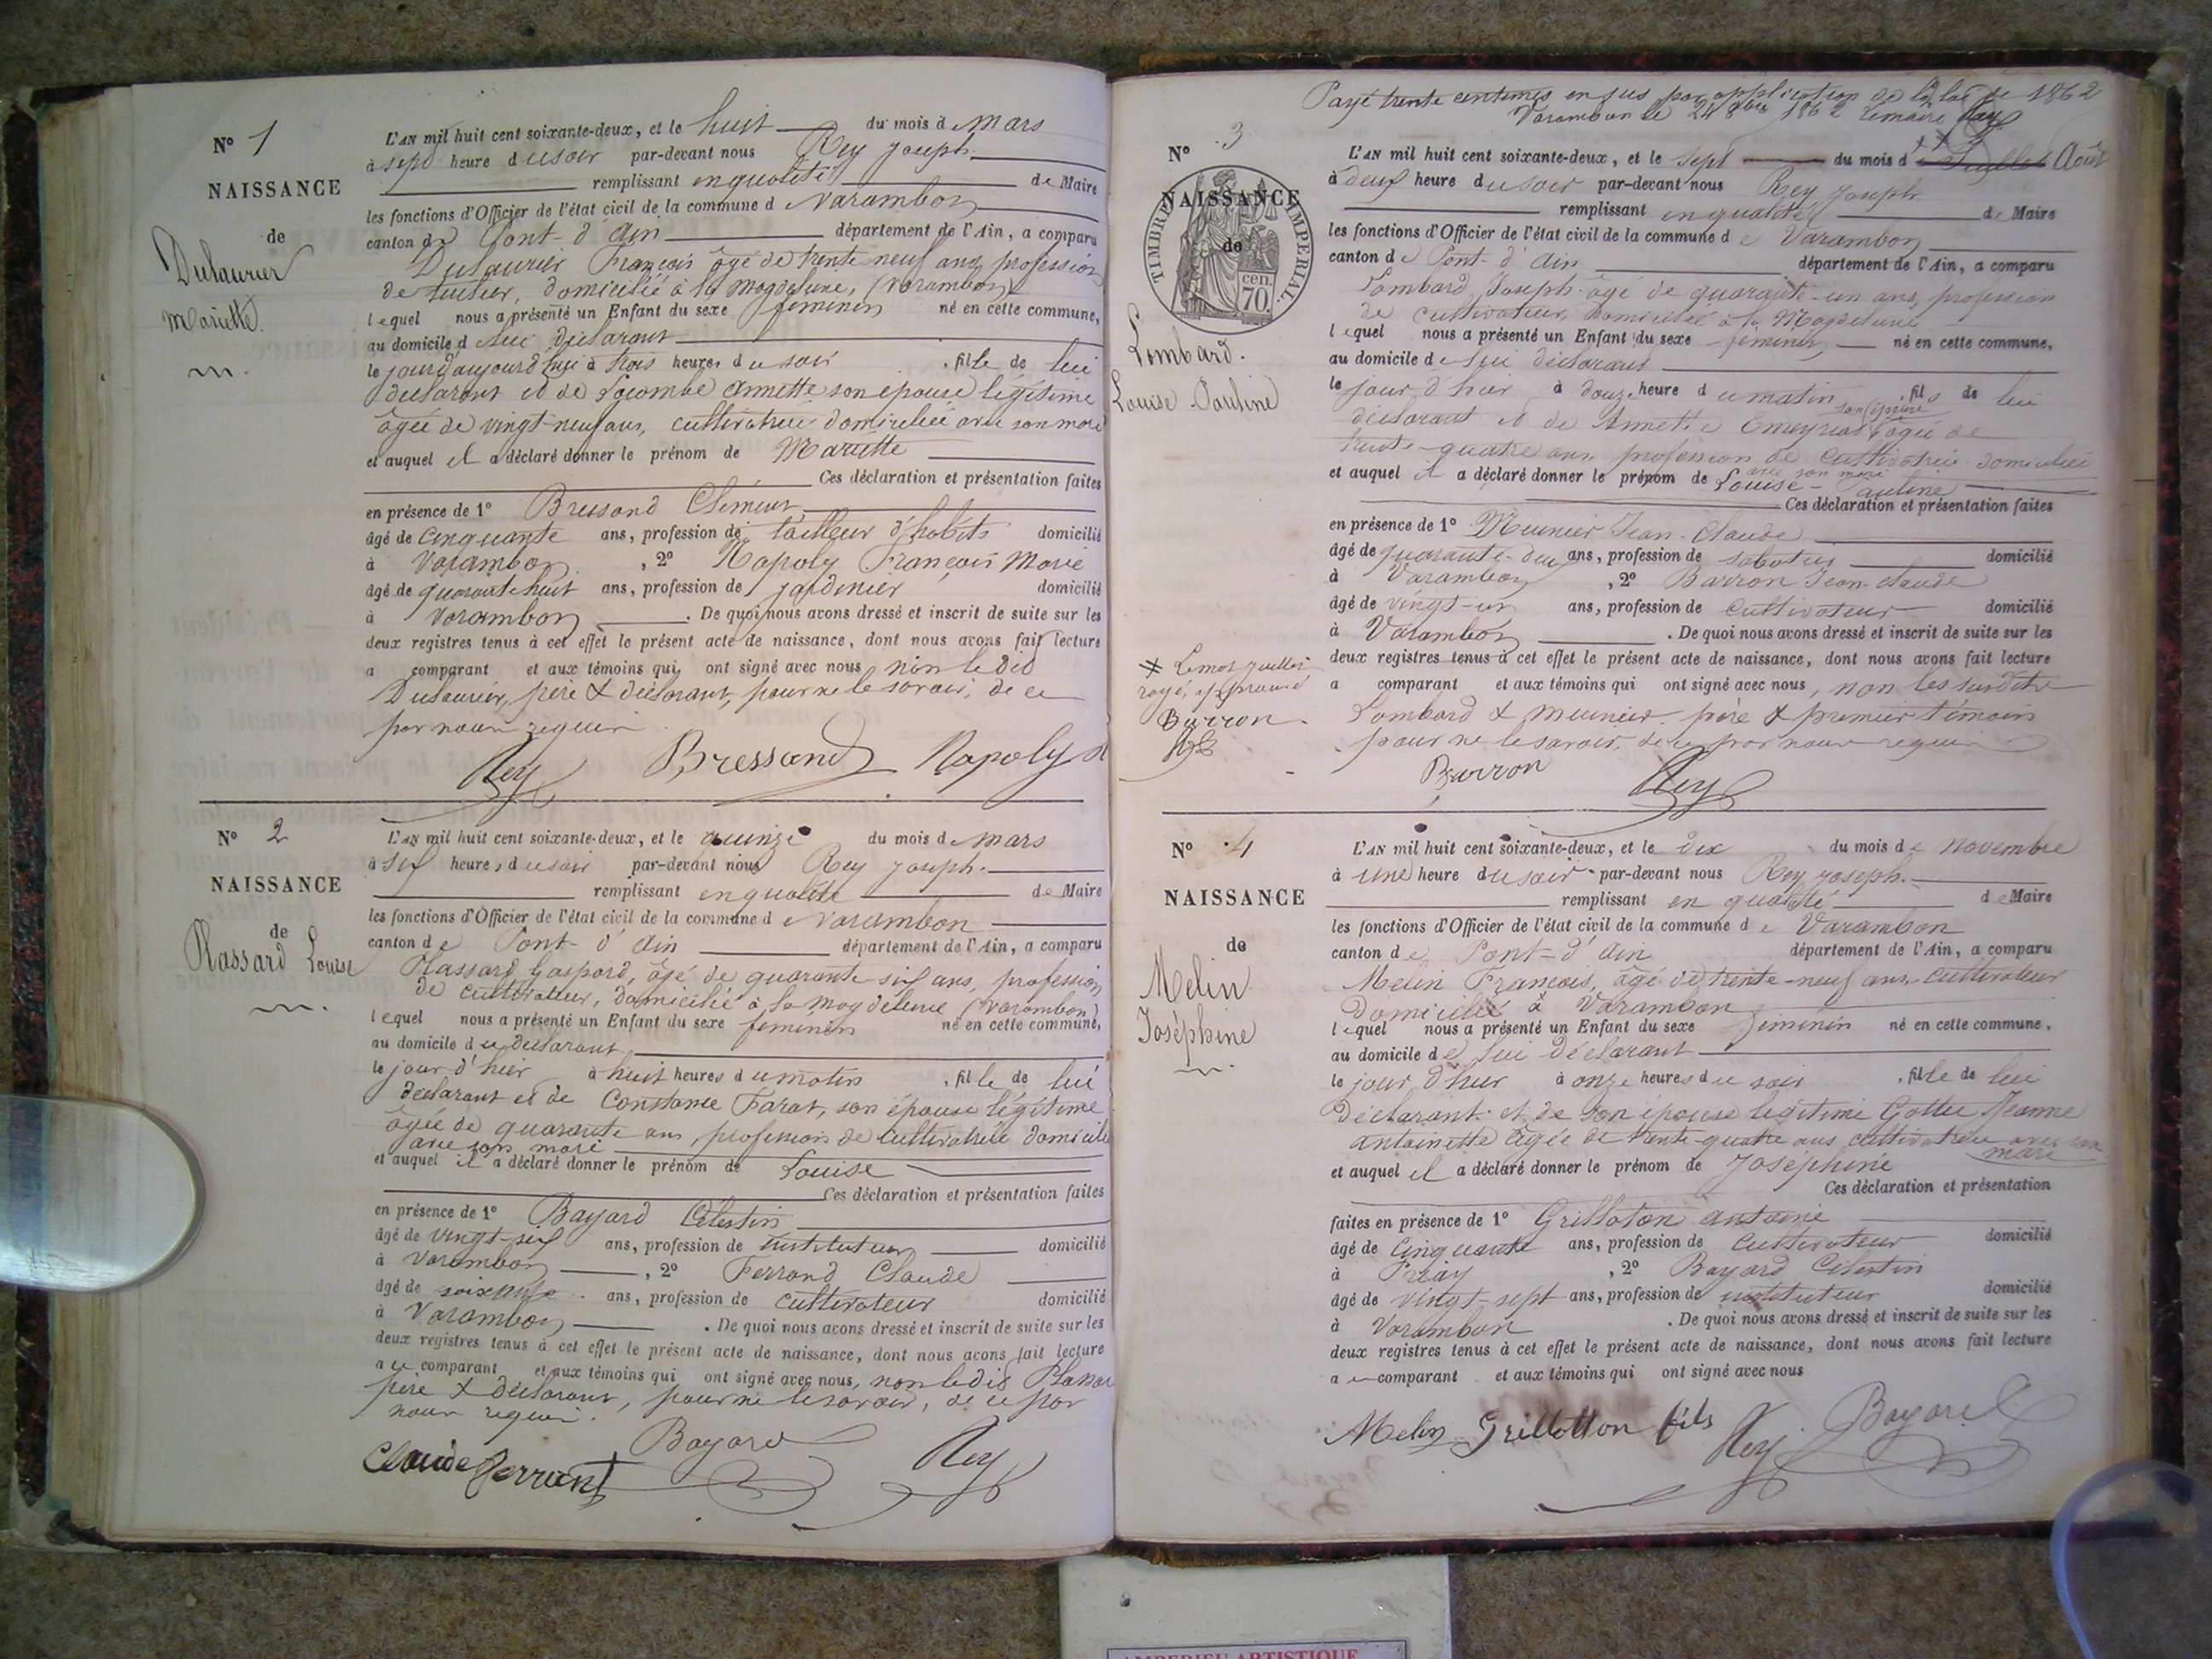 N° 1
NAISSANCE
de
Dulaurier
Mariette.
L'AN mil huit cent soixante-deux, et le huit du mois de Mars
à sept heure du soir par-devant nous Rey Joseph
remplissant en qualité de Maire
les fonctions d'Officier de l'état civil de la commune de Varambon
canton de Pont-d'Ain département de l'Ain, a comparu
Dulaurier François âgé de trente neuf ans, profession
de tuilier, domicilié à la Magdeleine, (Varambon)
lequel nous a présenté un Enfant du sexe féminin né en cette commune,
au domicile de lui déclarant
le jour d'aujourd'hui à trois heures du soir, fille de lui
déclarant et de Annette son épouse légitime
âgée de vingt-neuf ans, cultivatrice domiciliée avec son mari
et auquel il a déclaré donner le prénom de Mariette
Ces déclaration et présentation faites
en présence de 1° Bressand Clément
âgé de cinquante ans, profession de tailleur d'habits domicilié
à Varambon, 2° Napoly François Marie
âgé de quarante huit ans, profession de jardinier domicilié
à Varambon. De quoi nous avons dressé et inscrit de suite sur les
deux registres tenus à cet effet le présent acte de naissance, dont nous avons fait lecture
a comparant et aux témoins qui ont signé avec nous, non le dit
Dulaurier, père & déclarant, pour ne le savoir, de ce
par nous requis.
Rey Bressand Napoly
N° 2
NAISSANCE
de
Plassard Louise
L'AN mil huit cent soixante-deux, et le quinze du mois de Mars
à six heures du soir par-devant nous Rey Joseph.
remplissant en qualité de Maire
les fonctions d'Officier de l'état civil de la commune de Varambon
canton de Pont-d'Ain département de l'Ain, a comparu
Plassard Gaspard, âgé de quarante six ans, profession
de cultivateur, domicilié à la Magdeleine (Varambon)
lequel nous a présenté un Enfant du sexe féminin né en cette commune,
au domicile du déclarant
le jour d'hier à huit heures du matin, fille de lui
déclarant et de Constance Farat, son épouse légitime
âgée de quarante ans, profession de cultivatrice domicilié
avec son mari
et auquel il a déclaré donner le prénom de Louise
Ces déclaration et présentation faites
en présence de 1° Bayard Célestin
âgé de vingt-six ans, profession de instituteur domicilié
à Varambon, 2° Ferrand Claude
âgé de soixante ans, profession de cultivateur domicilié
à Varambon. De quoi nous avons dressé et inscrit de suite sur les
deux registres tenus à cet effet le présent acte de naissance, dont nous avons fait lecture
au comparant et aux témoins qui ont signé avec nous, non le dit Plassard
père & déclarant, pour ne le savoir, de ce par
nous requis.
Claude Ferrant Bayard Rey
Payé trente centimes en sus par application de la loi de 1862
Varambon le 24 8bre 1862 Le maire Rey
N° 3
NAISSANCE
de
TIMBRE IMPERIAL.
cen.
70.
Lombard.
Louise-Pauline
L'AN mil huit cent soixante-deux, et le sept du mois d' Juillet Août
à deux heure du soir par-devant nous Rey Joseph
remplissant en qualité de Maire
les fonctions d'Officier de l'état civil de la commune de Varambon
canton de Pont-d'Ain département de l'Ain, a comparu
Lombard Joseph âgé de quarante-un ans, profession
de cultivateur, domicilié à la Magdeleine
lequel nous a présenté un Enfant du sexe féminin né en cette commune,
au domicile de lui déclarant
le jour d'hier à douze heure du matin, fils de lui
déclarant et de Annette Emeyriat son épouse âgée de
trente-quatre ans profession de cultivatrice domiciliée
avec son mari
et auquel il a déclaré donner le prénom de Louise-Pauline
Ces déclaration et présentation faites
en présence de 1° Meunier Jean-Claude
âgé de quarante-deux ans, profession de sabotier domicilié
à Varambon, 2° Barron Jean-Claude
âgé de vingt-un ans, profession de cultivateur domicilié
à Varambon. De quoi nous avons dressé et inscrit de suite sur les
deux registres tenus à cet effet le présent acte de naissance, dont nous avons fait lecture
a comparant et aux témoins qui ont signé avec nous, non les susdits
Lombard & Meunier père & premier témoin
pour ne le savoir, de ce par nous requis
Barron Rey
Le mot juillet
rayé, approuvé
Barron
N° 4
NAISSANCE
de
Melin
Joséphine
L'AN mil huit cent soixante-deux, et le dix du mois de Novembre
à une heure du soir par-devant nous Rey Joseph.
remplissant en qualité de Maire
les fonctions d'Officier de l'état civil de la commune de Varambon
canton de Pont-d'Ain département de l'Ain, a comparu
Melin François, âgé de trente-neuf ans, cultivateur
domicilié à Varambon
lequel nous a présenté un Enfant du sexe féminin né en cette commune,
au domicile de lui déclarant
le jour d'hier à onze heures du soir, fille de lui
déclarant et de son épouse légitime Jeanne
antoinette âgée de trente-quatre ans cultivatrice avec son
mari
et auquel il a déclaré donner le prénom de Joséphine
Ces déclaration et présentation
faites en présence de 1° Grilloton antoine
âgé de cinquante ans, profession de cultivateur domicilié
à Priay, 2° Bayard Célestin
âgé de vingt-sept ans, profession de instituteur domicilié
à Varambon. De quoi nous avons dressé et inscrit de suite sur les
deux registres tenus à cet effet le présent acte de naissance, dont nous avons fait lecture
au comparant et aux témoins qui ont signé avec nous
Melin Grillotton fils Rey Bayard
AMBERIEU ARTISTIQUE